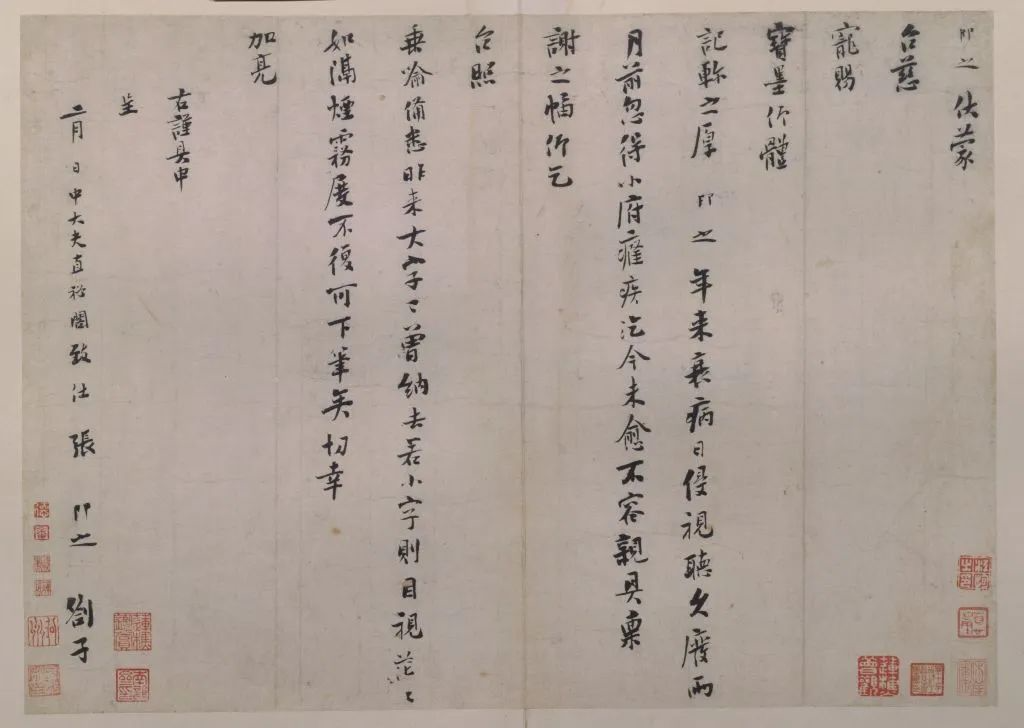 即之 伏蒙
台慈
寵賜
寶墨仰體
記軫之厚 即之 年来衰病日侵視聽久廢兩
月前忽得小府癰疾迄今未愈不容親具稟
謝之幅仰乞
台照
垂喻備悉昨来大字〻曾納去若小字則目視茫〻
如隔煙霧度不復可下筆矣切幸
加亮
右謹具申
呈
二月 日中大夫直祕閣致仕 張 即之 劄子